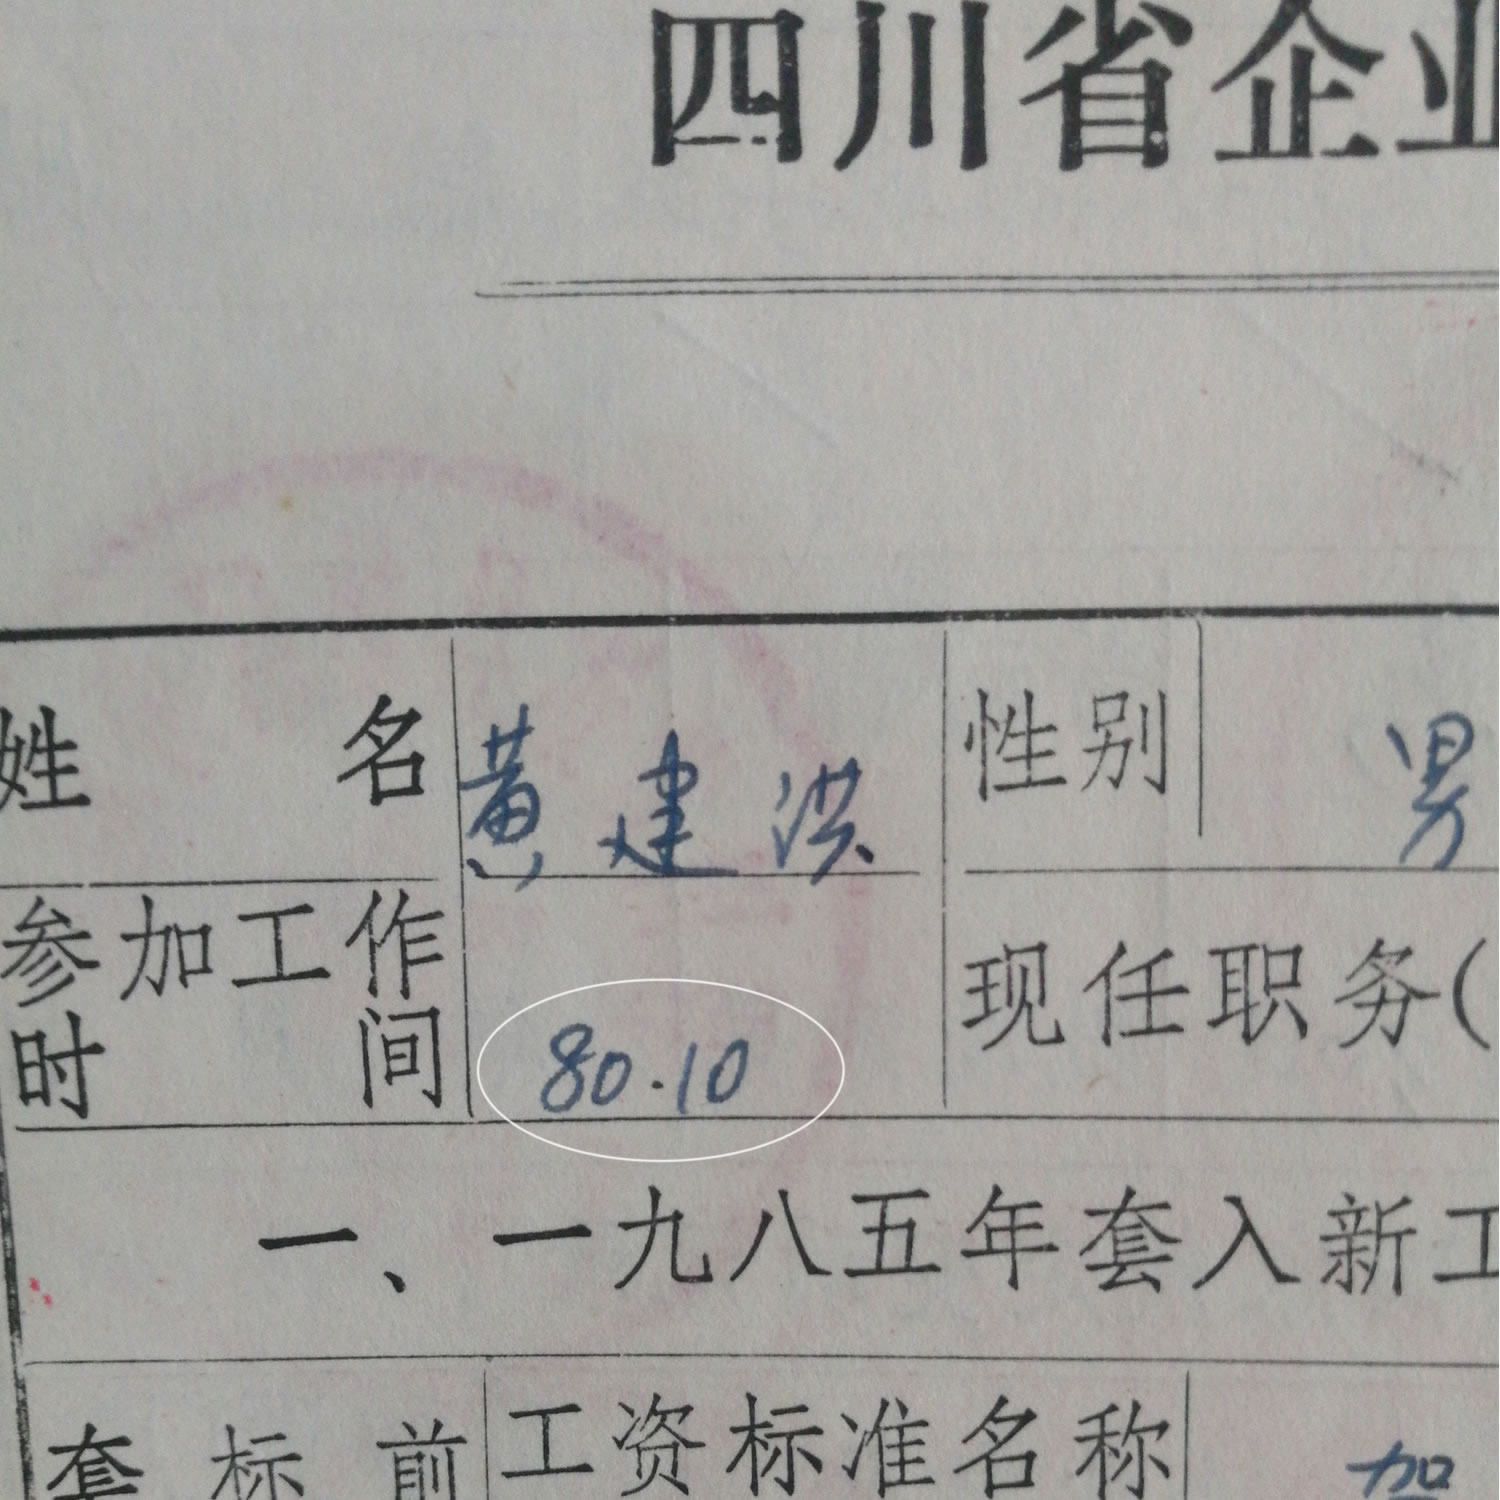 四川省企业
姓 名 黄建洪 性别 男
参加工作时间 80.10 现任职务(
一、一九八五年套入新工
套标前 工资标准名称 加